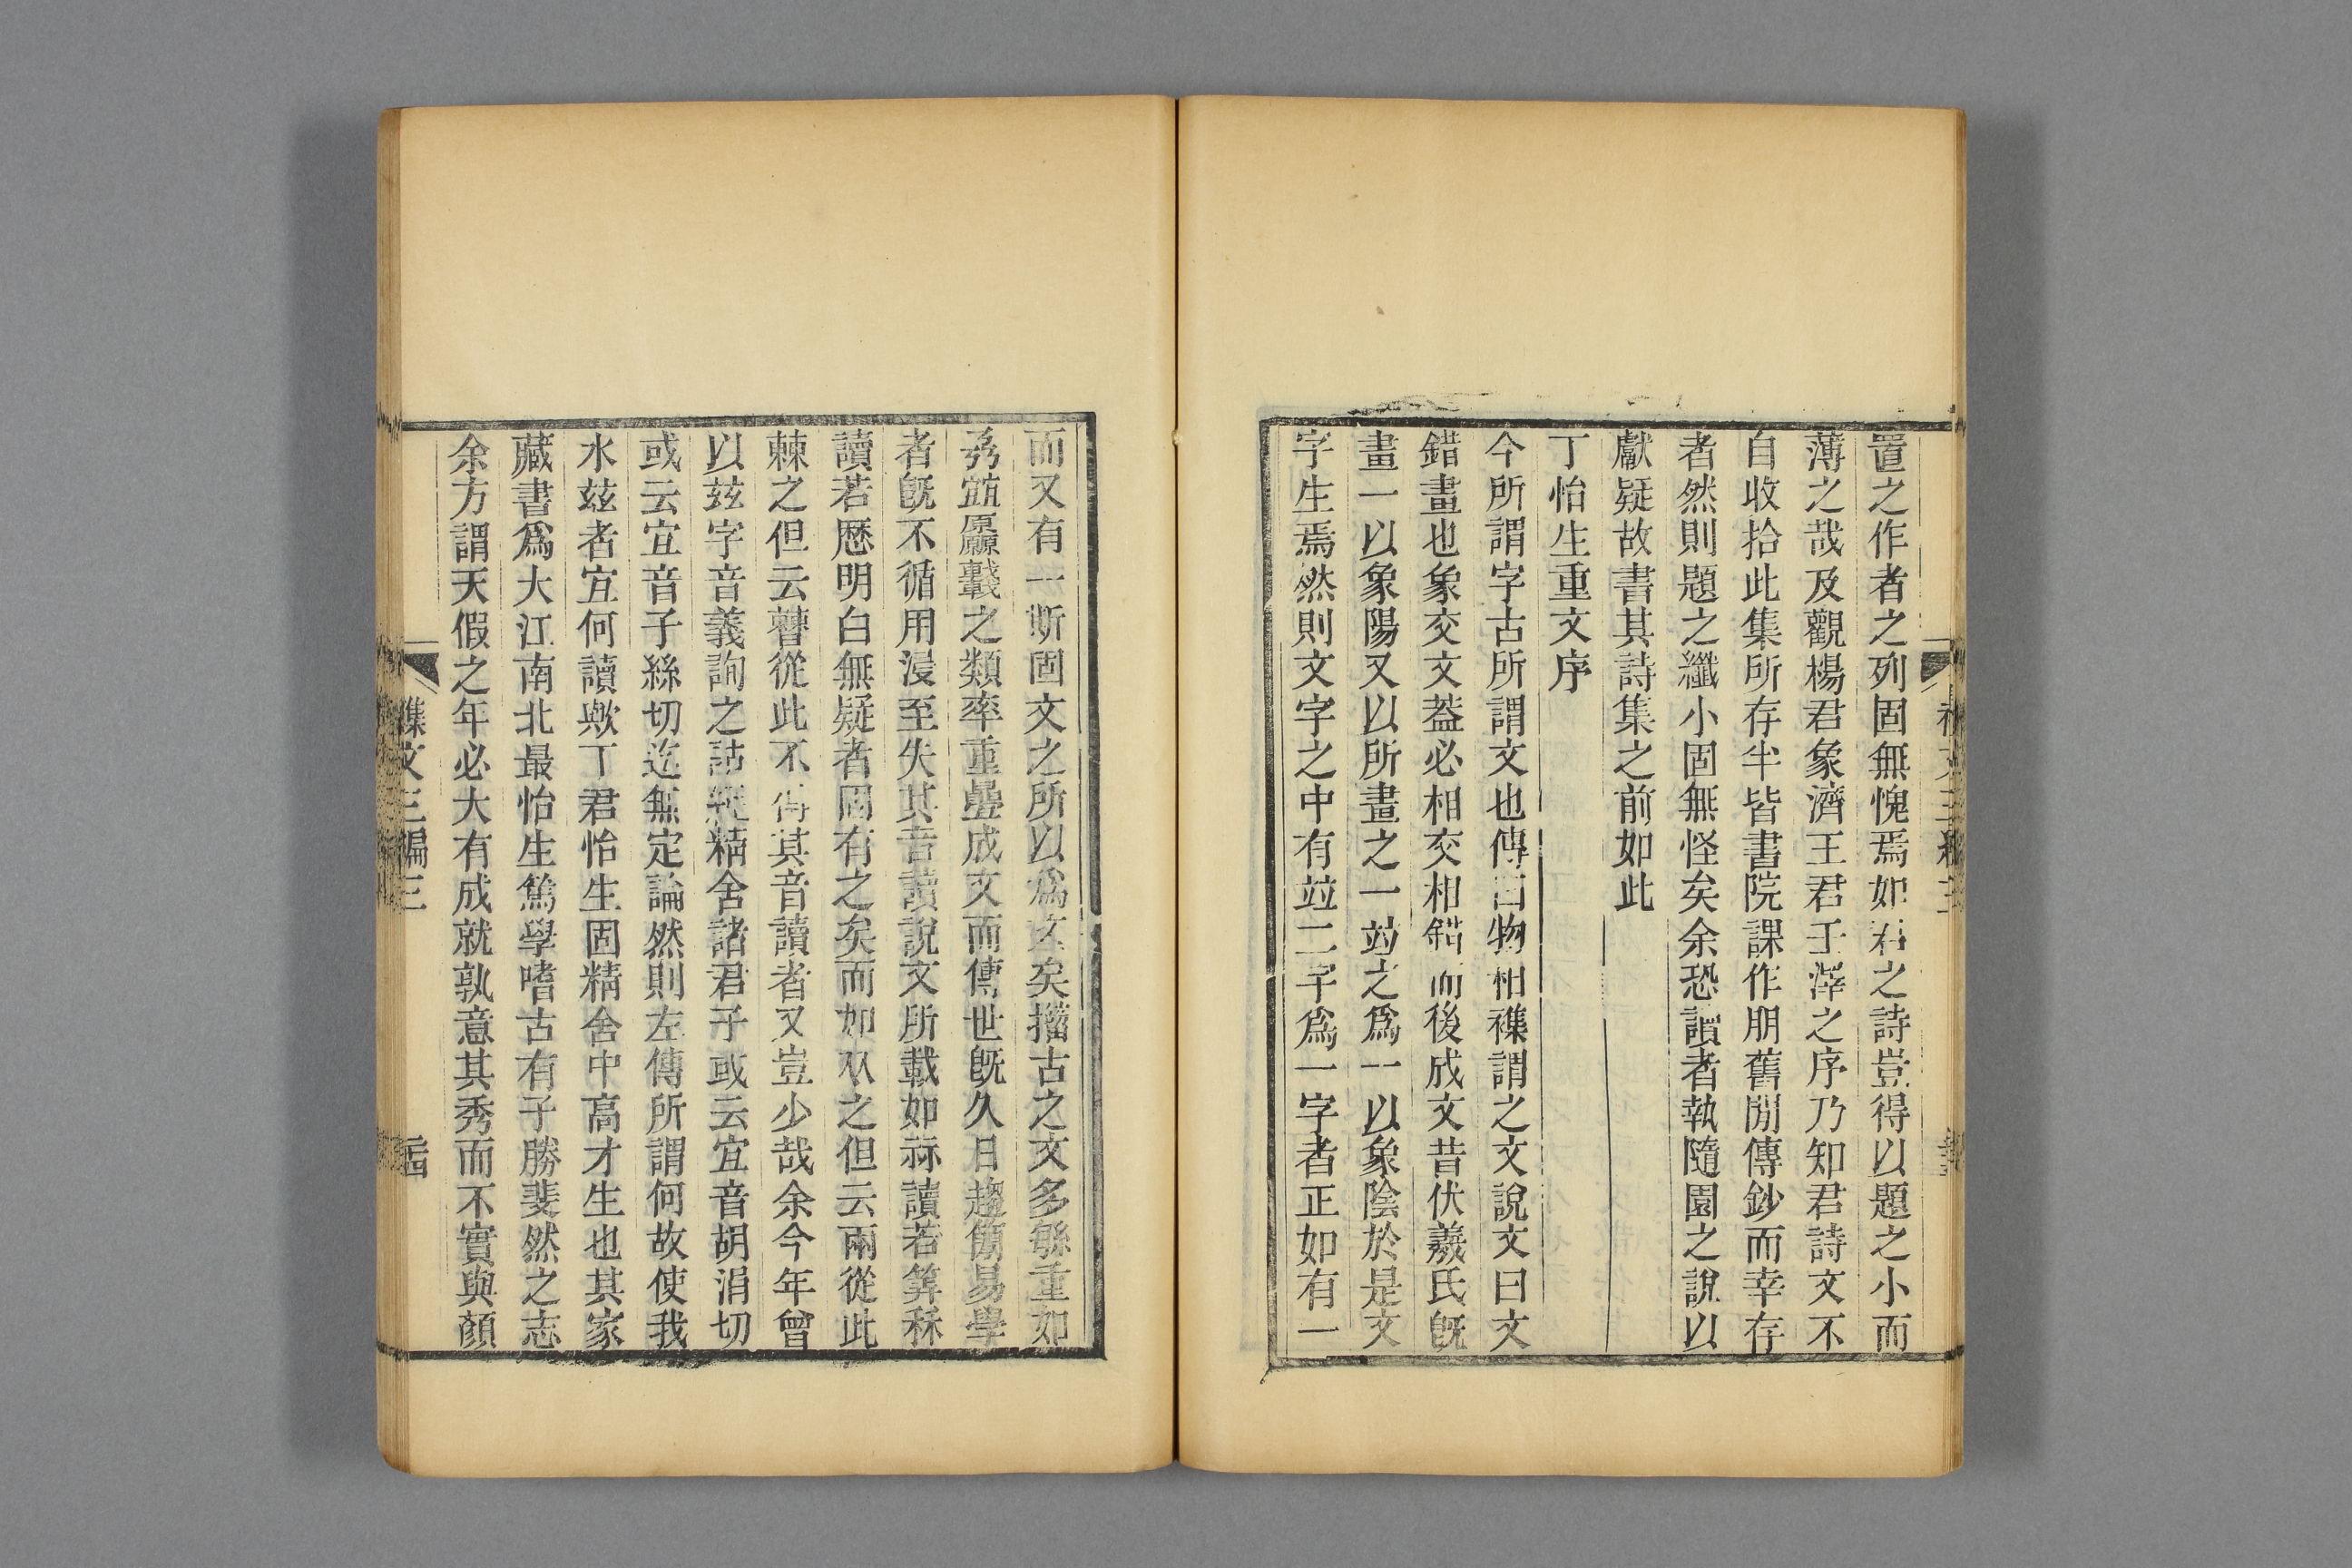 置之作者之列固無愧焉如君之詩豈得以題之小而
薄之哉及觀楊君象濟王君壬澤之序乃知君詩文不
自收拾此集所存半皆書院課作朋舊閒傳鈔而幸存
者然則題之纖小固無怪矣余恐讀者執隨園之說以
獻疑故書其詩集之前如此
丁怡生重文序
今所謂字古所謂文也傳曰物相襍謂之文說文曰文
錯畫也象交文葢必相交相錯而後成文昔伏羲氏旣
畫一以象陽又以所畫之一竝之爲一以象陰於是文
字生焉然則文字之中有竝二字爲一字者正如有一
而又有一斯固文之所以爲文矣籒古之文多緐重如
之類率重疊成文而傳世旣久日趨簡易學
者旣不循用浸至失其音讀說文所載如祘讀若筭秝
讀若歷明白無疑者固有之矣而如从之但云兩從此
棘之但云㯥從此不得其音讀者又豈少哉余今年曾
以玆字音義詢之詁經精舍諸君子或云宜音胡涓切
或云宜音子絲切迄無定論然則左傳所謂何故使我
水玆者宜何讀歟丁君怡生固精舍中高才生也其家
藏書爲大江南北最怡生篤學嗜古有子勝斐然之志
余方謂天假之年必大有成就孰意其秀而不實與顏
襍文三編三